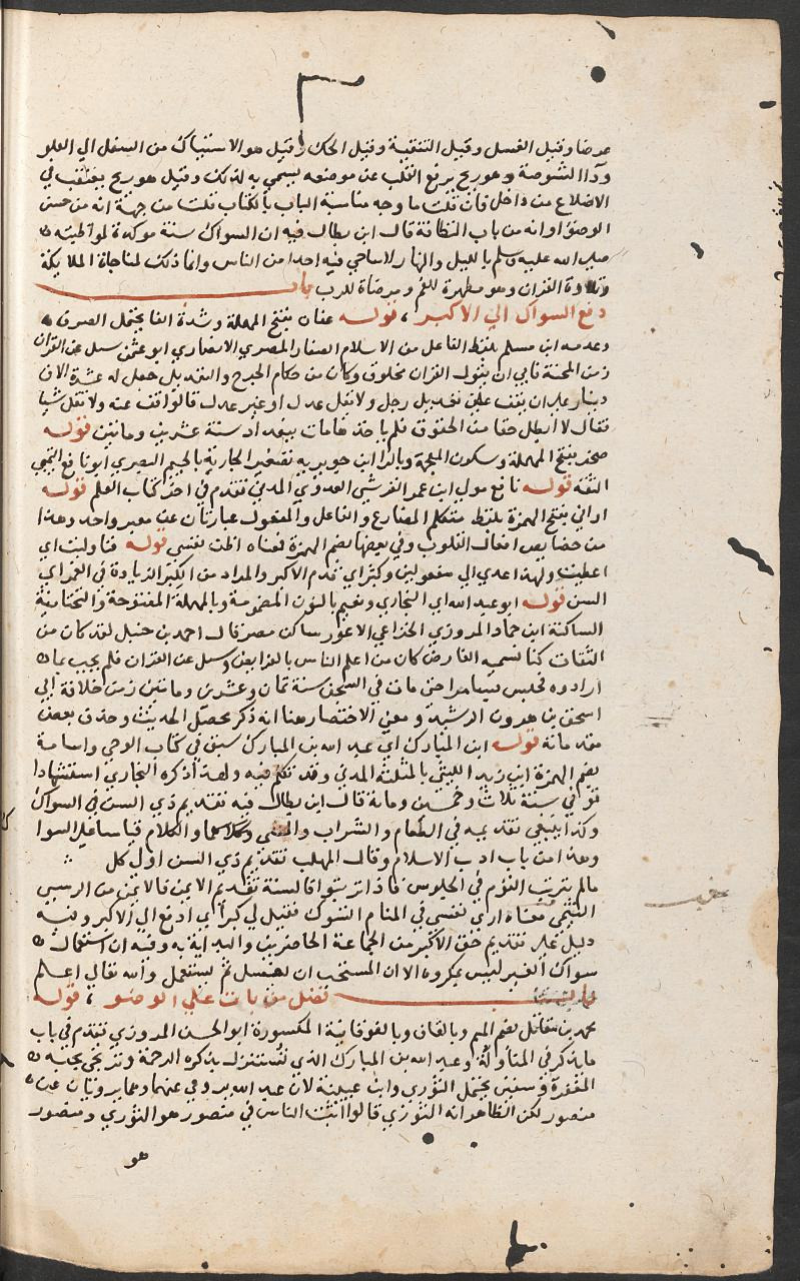 عرضا وقيل الغسل وقيل التنقية وقيل الحك وقيل هو الاستياك من السفل الي العلو
وداا الشوصة وهو ريح يرفع القلب عن موضعه يسمي به لذلك وقيل هو ريح يعتقب في
الاضلاع من داخل فان قلت ما وجه مناسبة الباب بالكتاب قلت من جهة انه من سنن
الوضؤ اوانه من باب النظافة قال ابن بطال فيه ان السواك سنة موكدة لمواظبته
صلي الله عليه وسلم بالليل والنهار لا ساحي فيه احدا من الناس وانما ذلك لمناجاة الملايكة
وتلاوة القران وهو مطهرة للفم ومرضاة للرب باب
دفع السواك الي الاكبر ، قوله عفان بفتح المهملة وشدة الفا يحتمل الصرف
وعدمه ابن مسلم بلفظ الفاعل من الاسلام الصفار المصري الانصاري ابو عثمن سيل عن القران
زمن المحنة فابي ان يقول القران مخلوق وكان من حكام الجرح والتعديل جعل له عشرة الاف
دينار علي ان يقف علي تعديل رجل ولا يقل عدل او غير عدل قالوا قف عنه ولا تقل شيا
فقال لا ابطل حقا من الحقوق فلم ياخذها مات ببغداد سنة عشرين ومايتين قوله
صخر بفتح المهملة وسكون المعجمة وبالرا ابن جويريه تصغير الجارية بالجيم البصري ابو نافع التيمي
الثقة قوله نافع مولي ابن عمر القرشي العدوي المدني تقدم في اخر كتاب العلم قوله
اراني بفتح الهمزة بلفظ متكلم المضارع والفاعل والمفعول عبارتان عن معبر واحد وهذا
من خصايص افعال القلوب وفي بعضها بضم الهمزة فمعناه اظن نفسي قوله فناولت اي
اعطيت ولهذا عدي الي مفعولين وكبر اي قدم الاكبر والمراد من الكبر الزيادة في العمر اي
السن قوله ابو عبد الله اي البخاري ونعيم بالنون المضمومة وبالمهملة المفتوحة والتحتانية
الساكنة ابن حماد المروزي الخزاعي الاعور ساكن مصر قال احمد بن حنبل لقد كان من
الثقات كنا نسميه الفارض كان من اعلم الناس بالفرايض وسيل عن القران فلم يجب بما
ارادوه فحبس بسامرا حتي مات في السجن سنة ثمان وعشرين ومايتين زمن خلافة ابي
اسحق بن هرون الرشيد ومعني الاختصار هنا انه ذكر محصل الحديث وحذف بعض
مقدماته قوله ابن المبارك اي عبد الله بن المبارك سبق في كتاب الوحي واسامة
بضم الهمزة ابن زيد الليثي بالمثلثة المدني وقد تكلم فيه ولهذا ذكره البخاري استشهادا
توفي سنة ثلاث وخمسين ومايه قال ابن بطال فيه تقديم ذي السن في السواك
وكذا ينبغي تقديمه في الطعام و الشراب والمشي والكلام قياسا علي السوا
وهذا من باب ادب الاسلام وقال المهلب تقديم ذي السن اولي كل
مالم يترتب القوم في الجلوس فاذا ترتبوا فالسنة تقديم الايمن فالايمن من الرييس
التيمي معناه اري نفسي في المنام اتسوك فقيل لي كبر اي ادفع الي الاكبر وفيه
دليل علي تقديم حق الاكبر من الجماعة الحاضرين والبداية به وفيه ان استعمال
سواك الغير ليس بمكروه الا ان المستحب ان يغسل ثم يستعمل والله تعالي اعلم
باب فضل من بات علي الوضو ، قوله
محمد بن مقاتل بضم الميم وبالقاف وبالفوقانية المكسورة ابو الحسن المروزي تقدم في باب
ما يذكر في المناولة وعبد الله بن المبارك الذي تستنزل بذكره الرحمة وترتجي بحبه
المغفرة وسفين يحتمل الثوري وابن عيينة لان عبد الله يروي عنهما وهما يرويان عن
منصور لكن الظاهر انه الثوري قالوا اثبت الناس في منصور هو الثوري ومنصور
هو